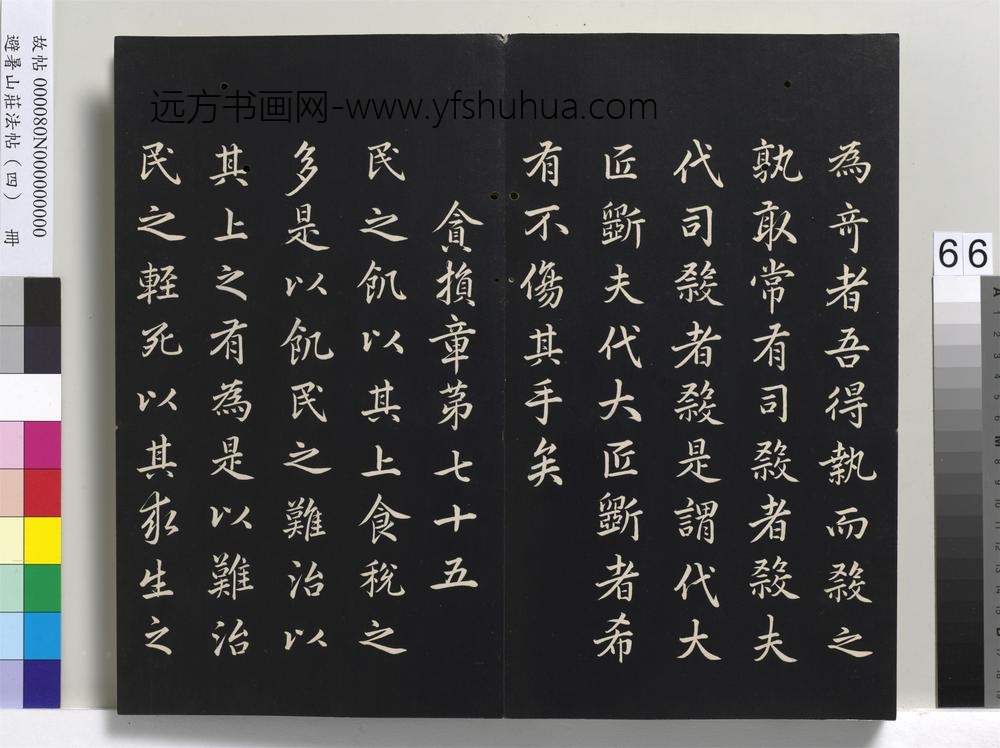 故帖 000080N000000000
避暑山莊法帖（四） 冊
远方书画网-www.yfshuhua.com
為竒者吾得執而殺之
孰敢常有司殺者殺夫
代司殺者殺是謂代大
匠斵夫代大匠斵者希
有不傷其手矣
貪損章第七十五
民之飢以其上食稅之
多是以飢民之難治以
其上之有為是以難治
民之輕死以其求生之
66